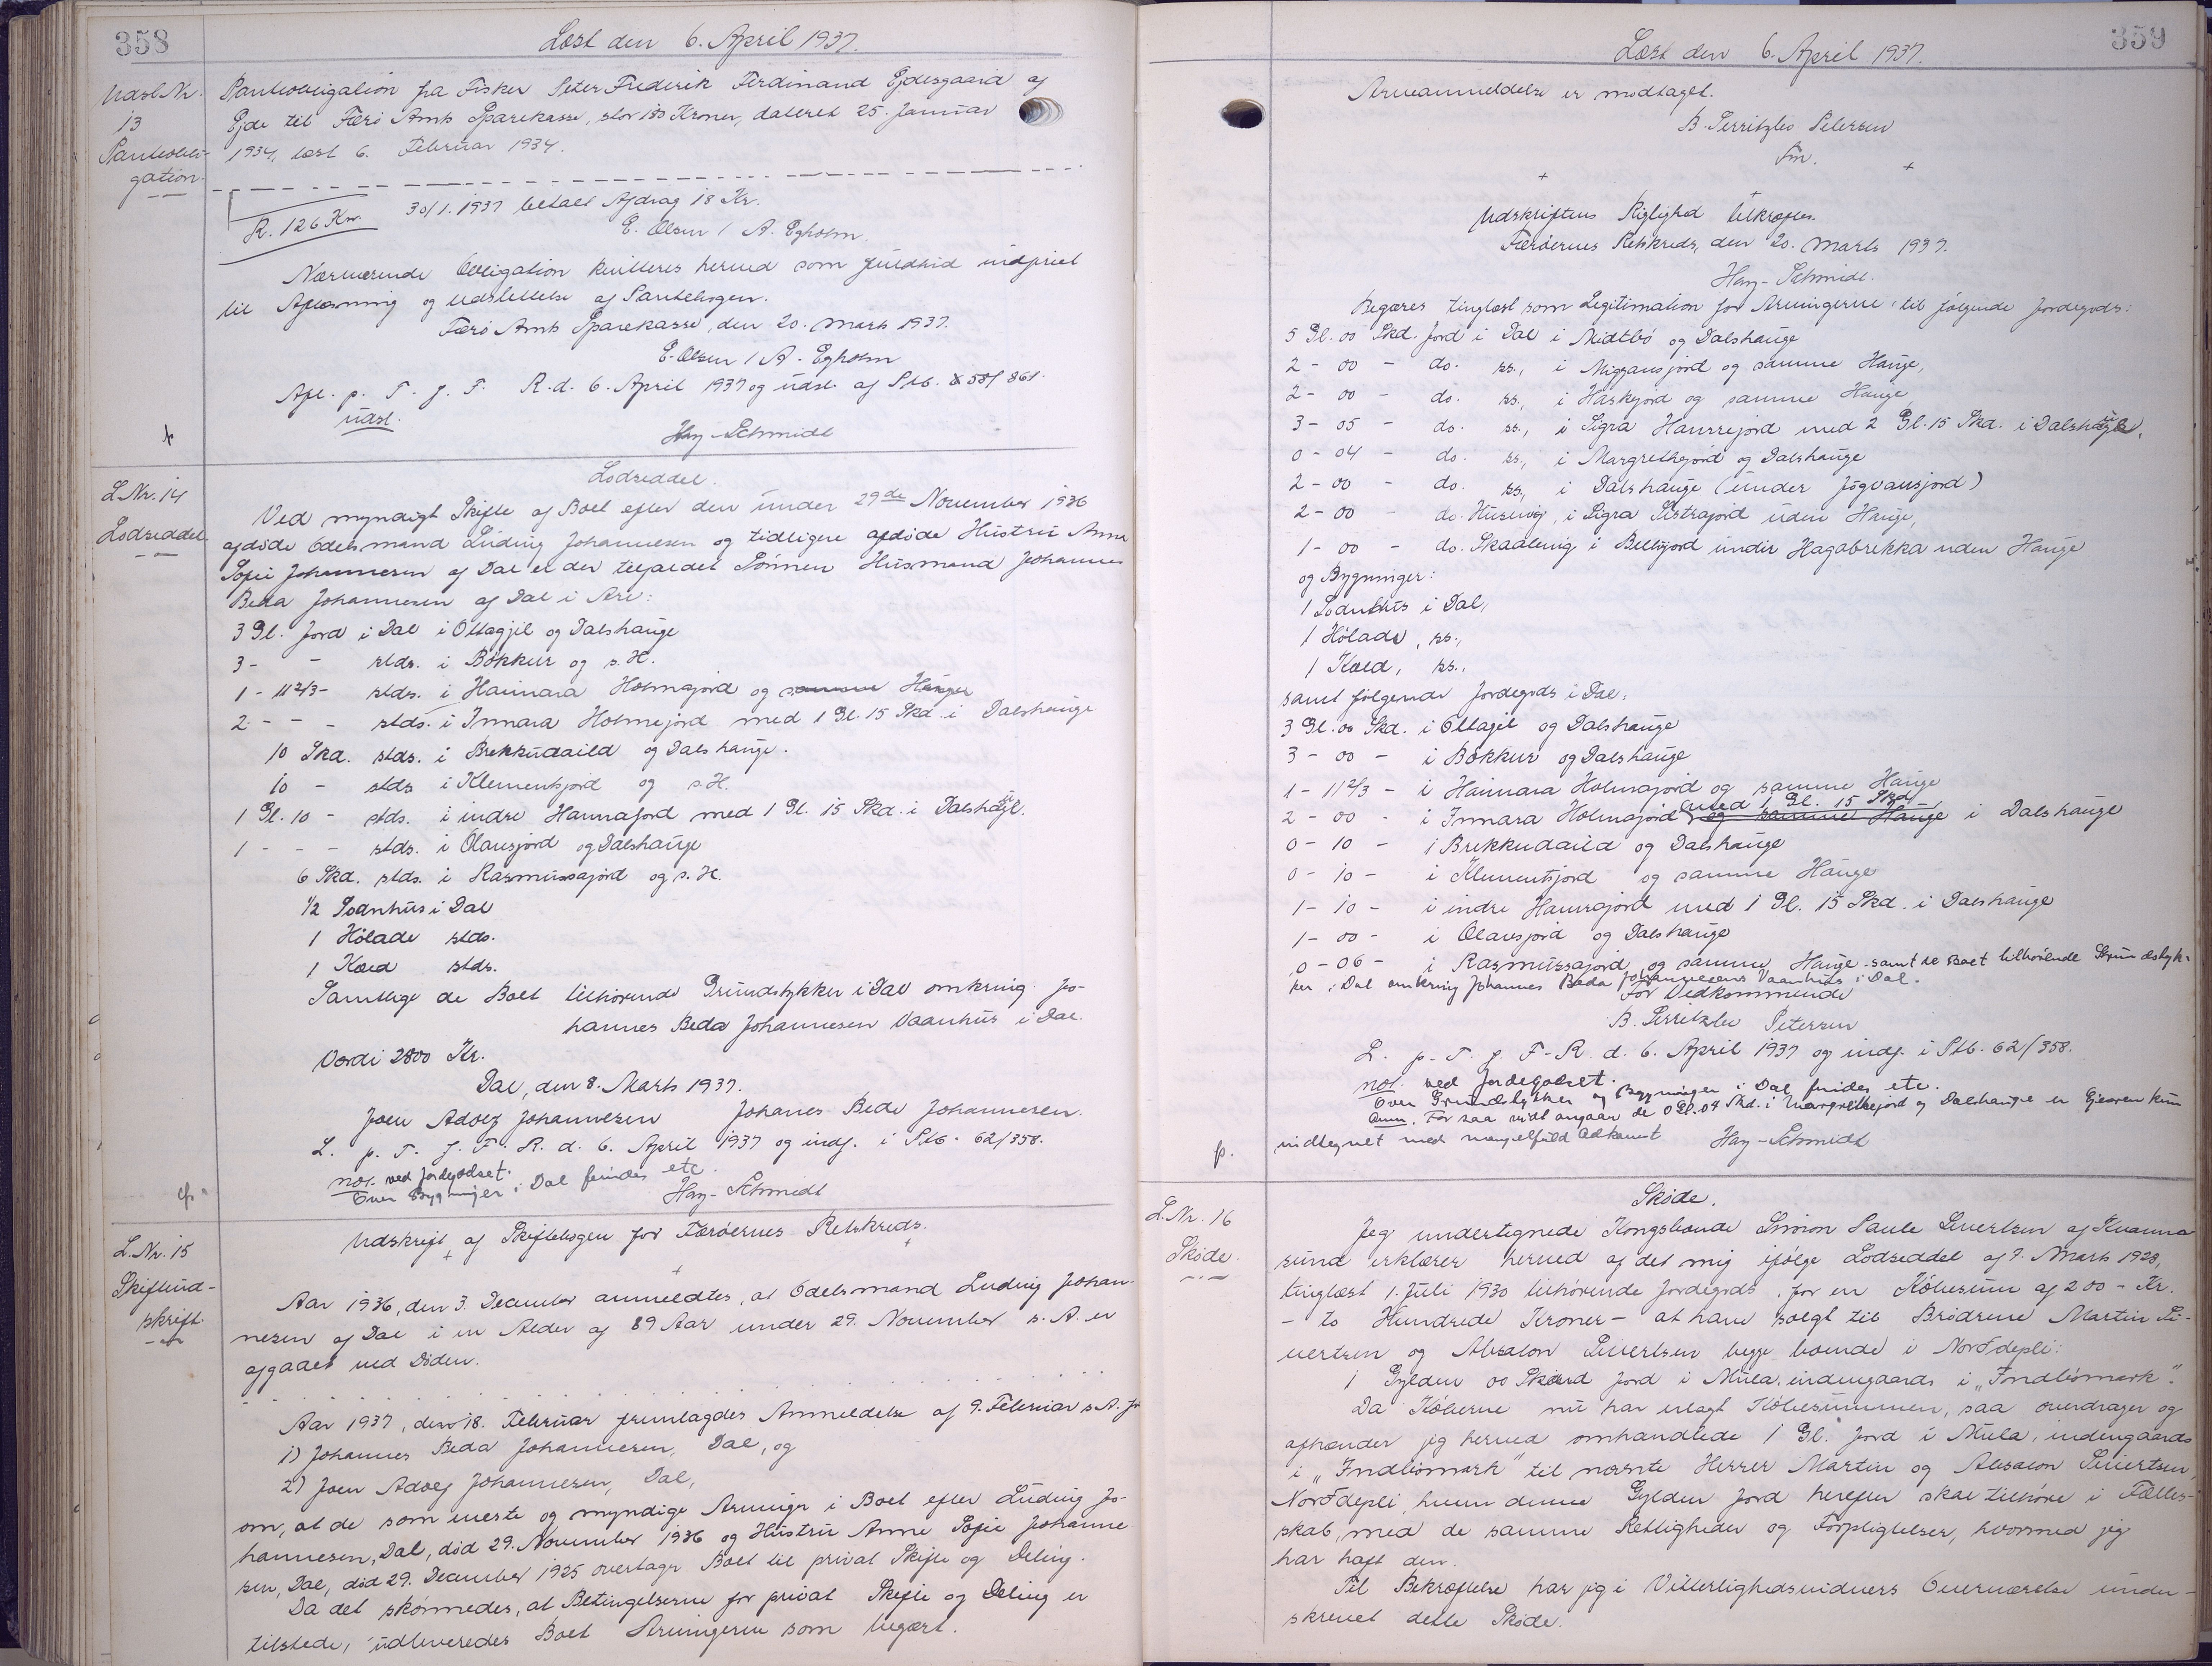 358
Læst den 6. April 1937.
Udsl. Nr.
13
Pantobli-
gation.
Pantobligation fra Fisker Peter Frederik Ferdinand Ejdesgaard af
Ejde til Færø Amts Sparekasse, stor 180 Kroner, dateret 25. Januar
1934, læst 6. Februar 1934.
R. 126 Kr. 30/1. 1937 betalt Afdrag 18 Kr.
E. Olsen / A. Egholm.
Nærværende Obligation kvitteres herved som fuldtud indfriet
til Aflæsning og Udslettelse af Pantebogen.
Færø Amts Sparekasse, den 20. Marts 1937.
E. Olsen / A. Egholm
Afl. p. T. f. F. R. d. 6. April 1937 og udsl. af Ptb. 58/861.
udsl.
Hay-Schmidt
L. Nr. 14
Lodseddel
Lodseddel.
Ved myndigt Skifte af Boet efter den under 29de November 1936
afdøde Odelsmand Ludvig Johannesen og tidligere afdøde Hustru Anna
Sofie Johannesen af Dal er der tilfaldet Sønnen Husmand Johannes
Beda Johannesen af Dal i Arv:
3 Gl. Jord i Dal i Ottagjil og Dalshauge
3 - - stds. i Bøkkur og s. H.
1 - 11 2/3 - stds. i Haimara Holmajord og samme Hauge
2 - - - stds. i Innara Holmejord med 1 Gl. 15 Skd. i Dalshauge
10 Skd. stds. i Brekkudaild og Dalshauge.
10 - stds i Klementsjord og s. H.
1 Gl. 10 - stds. i indre Hannajord med 1 Gl. 15 Skd. i Dalshauge.
1 - - - stds. i Olavsjord og Dalshauge
6 Skd. stds. i Rasmussajord og s. H.
1/2 Sodnhus i Dal
1 Hølade stds.
1 Kved stds.
Samtlige de Boet tilhørende Grundstykker i Dal omkring Jo-
hannes Beda Johannesen Vaanhus i Dal.
Værdi 2800 Kr.
Dal, den 8. Marts 1937.
Joen Adolf Johannesen Johanes Beda Johannesen.
L. p. T. f. F. R. d. 6. April 1937 og indf. i Ptb. 62/358.
not. ved Jordegodset.
Over Bygninger i Dal findes etc.
Hay-Schmidt
L. Nr. 15
Skifteud-
skrift.
Udskrift af Skiftebogen for Færøernes Retskreds.
Aar 1936, den 3. December anmeldtes, at Odelsmand Ludvig Johan-
nesen af Dal i en Alder af 89 Aar under 29. November s. A. er
afgaaet ved Døden.
Aar 1937, den 18. Februar fremlagdes Anmeldelse af 9. Februar s. A. fr
1) Johannes Beda Johannesen, Dal, og
2) Joen Adolf Johannesen, Dal,
om, at de som eneste og myndige Arvinger i Boet efter Ludvig Jo-
hannesen, Dal, død 29. November 1936 og Hustru Anne Sofie Johanne
sen, Dal, død 29. December 1925 overtager Boet til privat Skifte og Deling.
Da det skønnedes, at Betingelserne for privat Skifte og Deling er
tilstede, udleveredes Boet Arvingerne som begært.
359
Læst den 6. April 1937.
Arveanmeldelse er modtaget.
B. Serritzlev Petersen
fm.
Udskriftens Rigtighed bekræftes.
Færøernes Retskreds, den 20. Marts 1937.
Hay-Schmidt.
Begæres tinglæst som Legitimation for Arvingerne til følgende Jordegods:
5 Gl. 00 Skd. Jord i Dal i Midtbø og Dalshauge
2 - 00 - do. ss., i Miggansjord og samme Hauge,
2 - 00 - do. ss., i Haskjord og samme Hauge,
3 - 05 - do. ss., i Sigra Hansejord med 2 Gl. 15 Skd. i Dalshauge,
0 - 04 - do. ss., i Margrethejord og Dalshauge
2 - 00 - do. ss., i Dalshauge (under Jógvansjord)
2 - 00 - do. Husevig, i Sigra Sistrajord uden Hauge,
1 - 00 - do. Skaalevig i Bellisjord undir Hagabrekka uden Hauge
og Bygninger:
1 Sodnhus i Dal,
1 Hølade, ss.,
1 Kved, ss.,
samt følgende Jordegods i Dal:
3 Gl. 00 Skd. i Ottagil og Dalshauge
3 - 00 - i Bøkkur og Dalshauge
1 - 11 2/3 - i Haimara Holmajord og samme Hauge
2 - 00 - i Innara Holmajord med 1 Gl. 15 Skd og samme Hauge i Dalshauge
0 - 10 - i Brekkudaild og Dalshauge
0 - 10 - i Klementsjord og samme Hauge
1 - 10 - i indre Hannajord med 1 Gl. 15 Skd. i Dalshauge
1 - 00 - i Olavsjord og Dalshauge
0 - 06 - i Rasmussajord og samme Hauge samt de Boet tilhørende Grundstyk-
ker i Dal omkring Johannes Beda Johannesens Vaanhus i Dal.
For Vedkommende
B. Serritzlev Petersen
L. p. T. f. F. R. d. 6. April 1937 og indf. i Ptb. 62/358.
not. ved Jordegodset.
Over Grundstykker og Bygninger i Dal findes etc.
Anm. For saa vidt angaar de 0 Gl. 04 Skd. i Margrethejord og Dalshauge er Ejeren kun
indtegnet med mangelfuld Adkomst
Hay-Schmidt
L. Nr. 16
Skøde.
Skøde.
Jeg undertegnede Kongsbonde Simon Paule Sivertsen af Kvanna
sund erklærer herved af det mig ifølge Lodseddel af 9. Marts 1928,
tinglæst 1. Juli 1930 tilhørende Jordegods, for en Købesum af 200 - Kr.
- to Hundrede Kroner - at have solgt til Brødrene Martin Si-
vertsen og Absalon Sivertsen begge boende i Norddepli:
1 Gylden 00 Skind Jord i Mula, indengaards i „Indbismork".
Da Køberne nu har erlagt Købesummen, saa overdrager og
afhænder jeg herved omhandlede 1 Gl. Jord i Mula, indengaards
i „Indbismork" til nævnte Herrer Martin og Absalon Sivertsen,
Norddepli, hvem denne Gylden Jord herefter skal tilhøre i Fælles-
skab, med de samme Rettigheder og Forpligtelser, hvormed jeg
har haft den.
Til Bekræftelse har jeg i Vitterlighedsvidners Overværelse under-
skrevet dette Skøde.